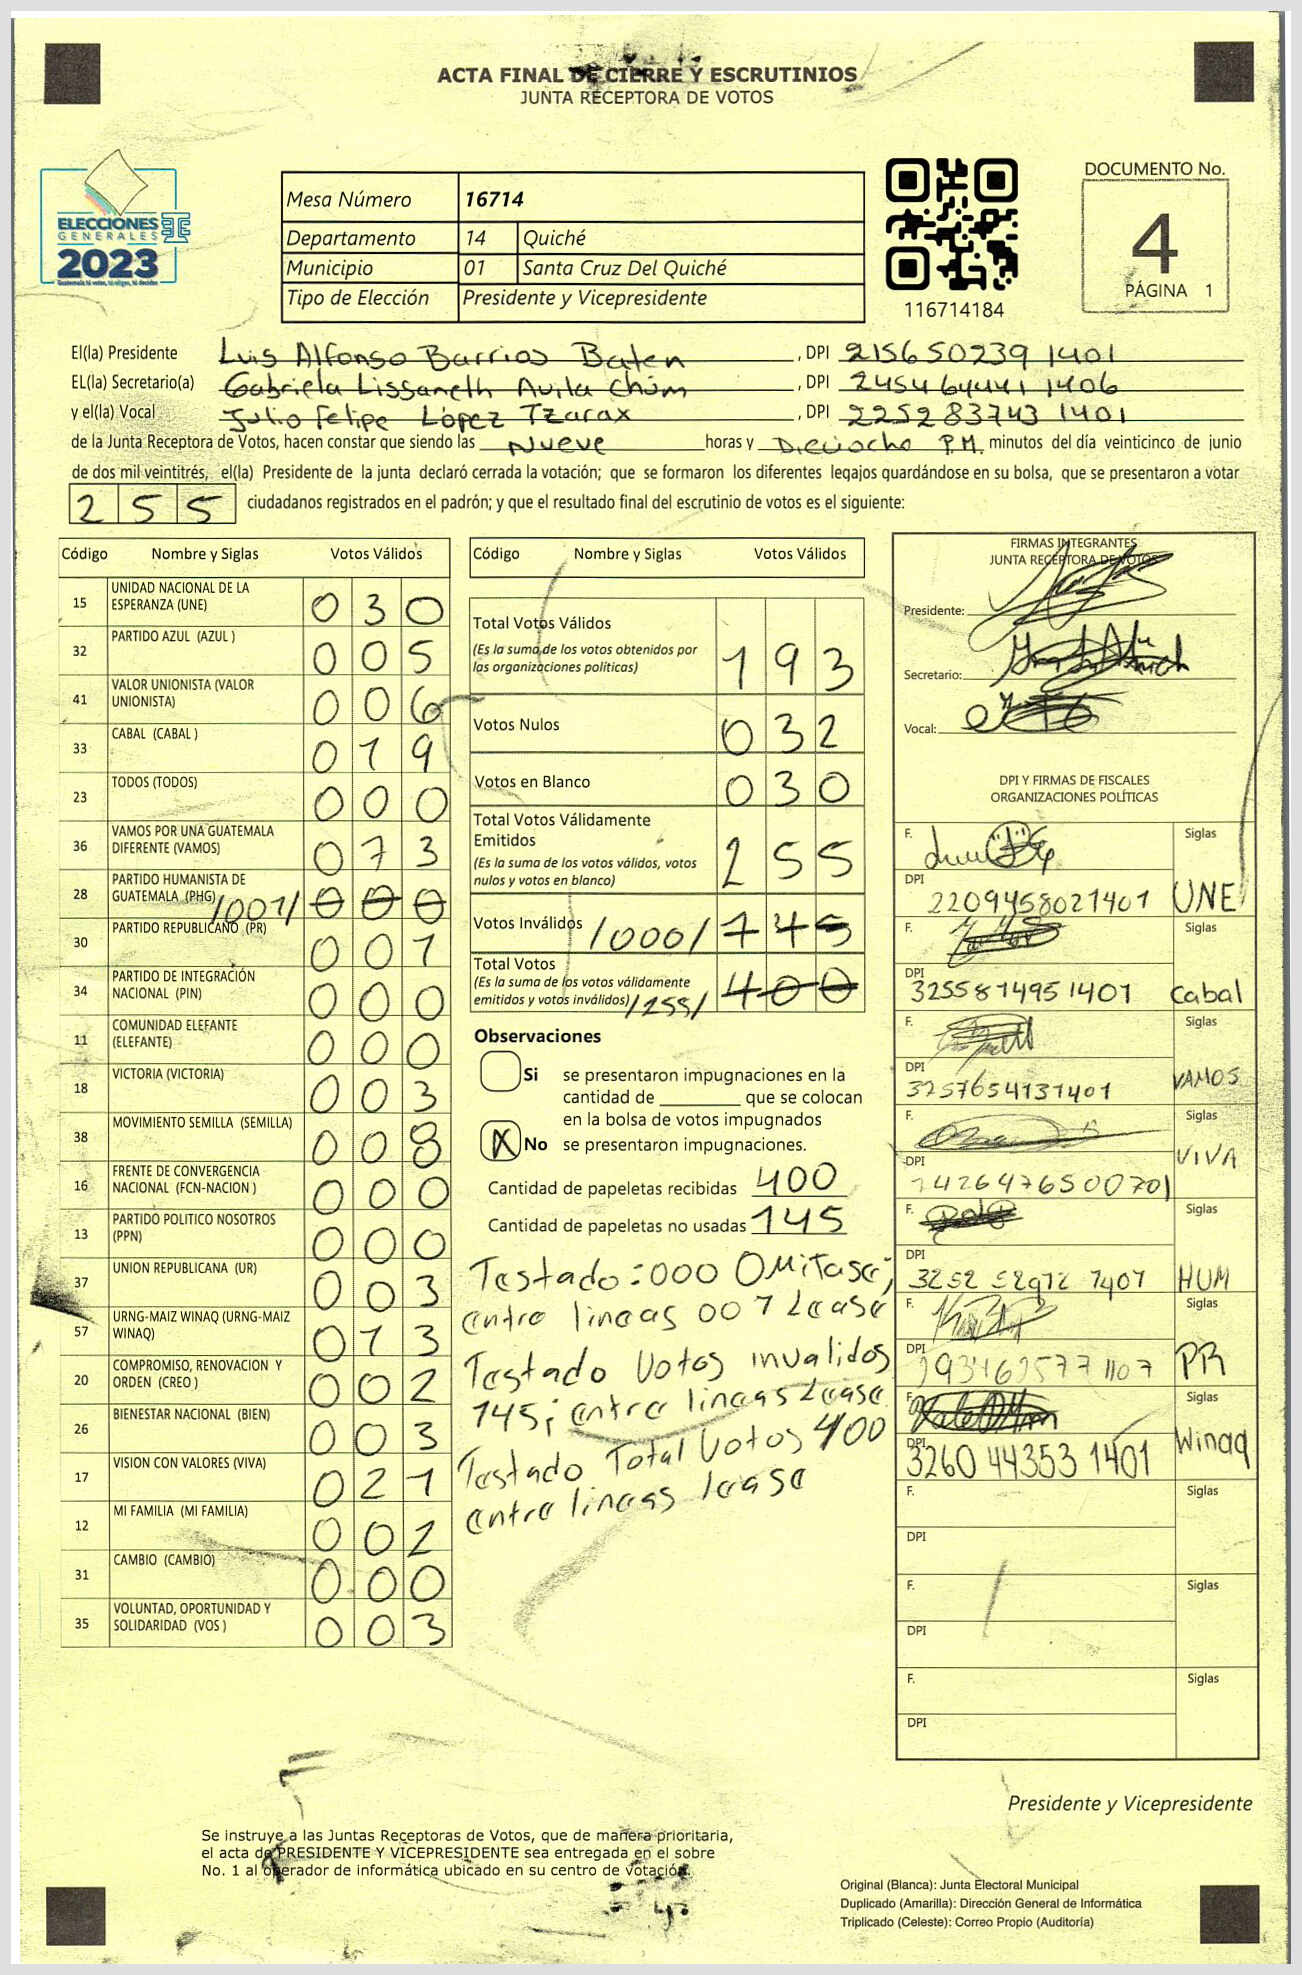 ACTA FINAL DE CIERRE Y ESCRUTINIOS
JUNTA RECEPTORA DE VOTOS
ELECCIONES
GENERALES
2023
Guatemala tú votas, tú eliges, tú decides
Mesa Número 16714
Departamento 14 Quiché
Municipio 01 Santa Cruz Del Quiché
Tipo de Elección Presidente y Vicepresidente
116714184
DOCUMENTO No.
4
PÁGINA 1
El(la) Presidente Luis Alfonso Barrios Baten , DPI 215650239 1401
EL(la) Secretario(a) Gabriela Lissaneth Avila Chúm , DPI 245464441 1406
y el(la) Vocal Julio Felipe López Tzarax , DPI 2252 83743 1401
de la Junta Receptora de Votos, hacen constar que siendo las Nueve horas y Dieciocho P.M. minutos del día veinticinco de junio
de dos mil veintitrés, el(la) Presidente de la junta declaró cerrada la votación; que se formaron los diferentes legajos guardándose en su bolsa, que se presentaron a votar
255 ciudadanos registrados en el padrón; y que el resultado final del escrutinio de votos es el siguiente:
Código Nombre y Siglas Votos Válidos
15 UNIDAD NACIONAL DE LA ESPERANZA (UNE) 030
32 PARTIDO AZUL (AZUL ) 005
41 VALOR UNIONISTA (VALOR UNIONISTA) 006
33 CABAL (CABAL ) 019
23 TODOS (TODOS) 000
36 VAMOS POR UNA GUATEMALA DIFERENTE (VAMOS) 073
28 PARTIDO HUMANISTA DE GUATEMALA (PHG) /001/ 000
30 PARTIDO REPUBLICANO (PR) 001
34 PARTIDO DE INTEGRACIÓN NACIONAL (PIN) 000
11 COMUNIDAD ELEFANTE (ELEFANTE) 000
18 VICTORIA (VICTORIA) 003
38 MOVIMIENTO SEMILLA (SEMILLA) 008
16 FRENTE DE CONVERGENCIA NACIONAL (FCN-NACION ) 000
13 PARTIDO POLITICO NOSOTROS (PPN) 000
37 UNION REPUBLICANA (UR) 003
57 URNG-MAIZ WINAQ (URNG-MAIZ WINAQ) 013
20 COMPROMISO, RENOVACION Y ORDEN (CREO ) 002
26 BIENESTAR NACIONAL (BIEN) 003
17 VISION CON VALORES (VIVA) 021
12 MI FAMILIA (MI FAMILIA) 002
31 CAMBIO (CAMBIO) 000
35 VOLUNTAD, OPORTUNIDAD Y SOLIDARIDAD (VOS ) 003
Código Nombre y Siglas Votos Válidos
Total Votos Válidos 193
(Es la suma de los votos obtenidos por
las organizaciones políticas)
Votos Nulos 032
Votos en Blanco 030
Total Votos Válidamente
Emitidos 255
(Es la suma de los votos válidos, votos
nulos y votos en blanco)
Votos Inválidos /000/ 145
Total Votos
(Es la suma de los votos válidamente
emitidos y votos inválidos) /255/ 400
Observaciones
Si se presentaron impugnaciones en la
cantidad de ________ que se colocan
en la bolsa de votos impugnados
X No se presentaron impugnaciones.
Cantidad de papeletas recibidas 400
Cantidad de papeletas no usadas 145
Testado: 000 Omitase;
entre lineas 001 Lease
Testado Votos invalidos
145; entre lineas Lease
Testado Total Votos 400
entre lineas lease
FIRMAS INTEGRANTES
JUNTA RECEPTORA DE VOTOS
Presidente:
Secretario:
Vocal:
DPI Y FIRMAS DE FISCALES
ORGANIZACIONES POLÍTICAS
F. Siglas
DPI 2209458021401 UNE
F. Siglas
DPI 3255814951401 Cabal
F. Siglas
DPI 3257654131401 VAMOS
F. Siglas
DPI 1426476500701 VIVA
F. Siglas
DPI 3252 52972 1401 HUM
F. Siglas
DPI PR
F. Siglas
DPI 3260 44353 1401 Winaq
F. Siglas
DPI
F. Siglas
DPI
F. Siglas
DPI
Presidente y Vicepresidente
Se instruye a las Juntas Receptoras de Votos, que de manera prioritaria,
el acta de PRESIDENTE Y VICEPRESIDENTE sea entregada en el sobre
No. 1 al operador de informática ubicado en su centro de votación.
Original (Blanca): Junta Electoral Municipal
Duplicado (Amarilla): Dirección General de Informática
Triplicado (Celeste): Correo Propio (Auditoría)